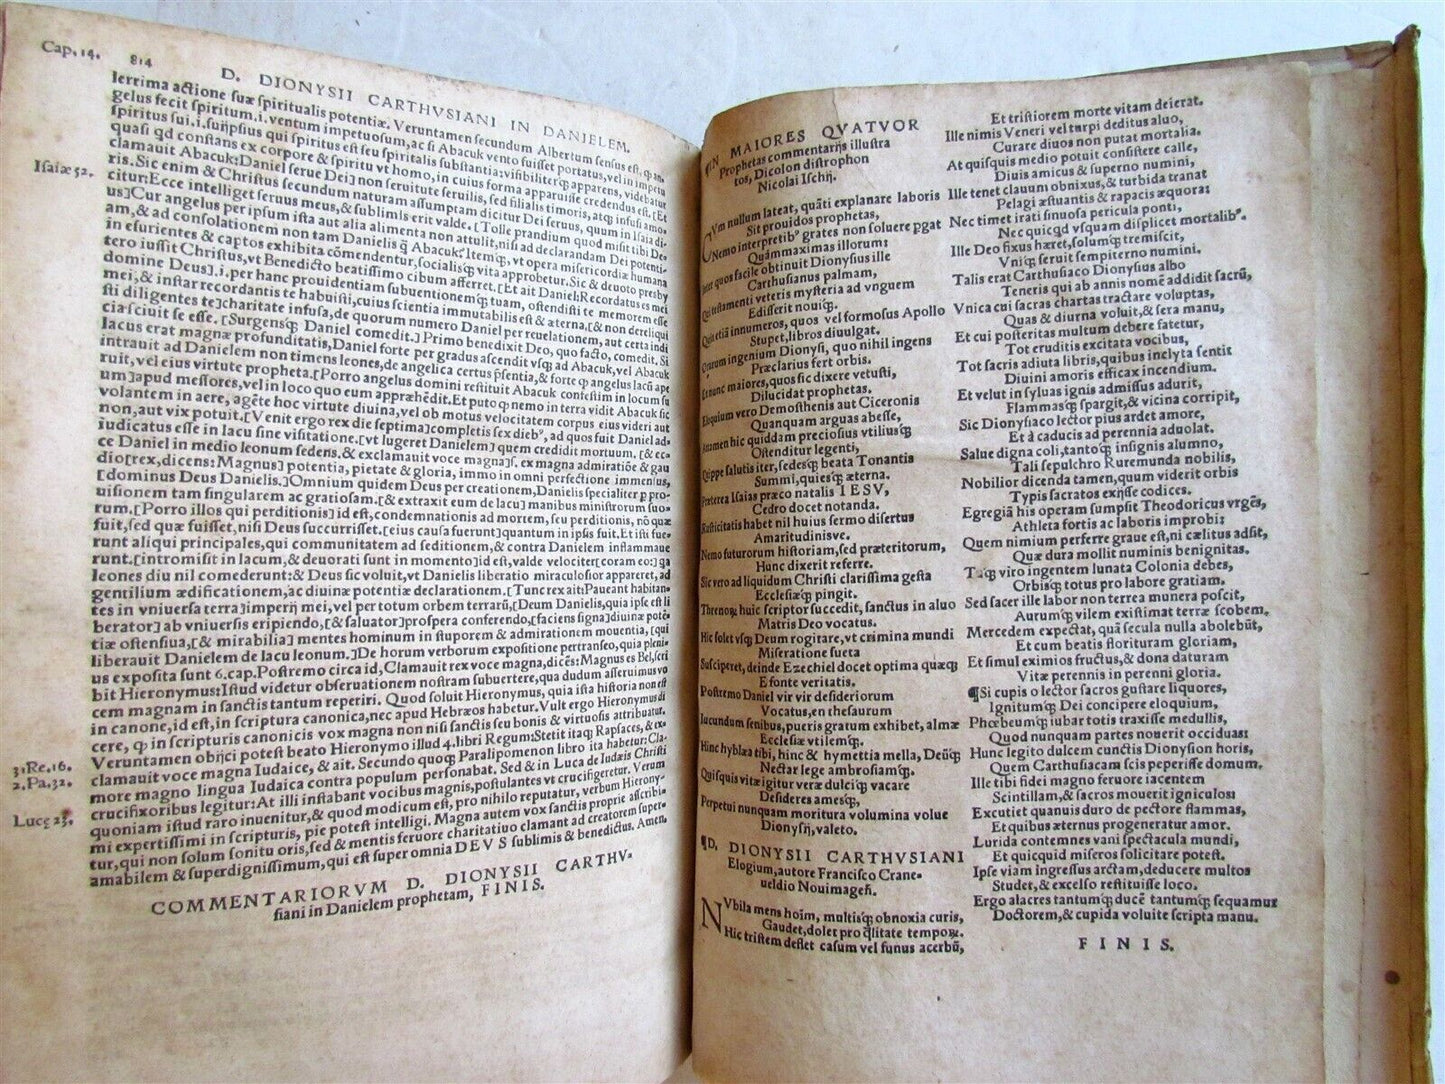 Cap. 14. 814
D. DIONYSII CARTHVSIANI IN DANIELEM.
lerrima actione suæ spiritualis potentiæ. Veruntamen secundum Albertum sensus est, ꝙ an-
gelus fecit spiritum .i. ventum impetuosum, ac si Abacuk vento fuisset portatus, vel in impetu
spiritus sui .i. suijpsius qui spiritus est seu spiritalis substantia: visibiliterq; apparens, videbatur
quasi qd constans ex corpore & spiritu vt homo, in cuius forma apparuisse credendus est. [Et
clamauit Abacuk: Daniel serue Dei] non seruitute seruili, sed filialis timoris, atq; infusi amo-
Isaiæ 52.
ris. Sic enim & Christus secundum naturam assumptam dicitur Dei seruus, vnde in Isaia di-
citur: Ecce intelliget seruus meus, & sublimis erit valde. [Tolle prandium quod misit tibi De-
us] Cur angelus per ipsum ista aut alia alimenta non attulit, nisi ad declarandam Dei potenti-
am, & ad consolationem non tam Danielis q̃ Abacuk? Itemq;, vt opera misericordiæ humana
in esurientes & captos exhibita cōmendentur, socialisq; vita approbetur. Sic & deuoto presby
tero iussit Christus, vt Benedicto beatissimo cibum afferret. [Et ait Daniel: Recordatus es mei
domine Deus] .i. per hanc prouidentiam subuentionemq; tuam, ostendisti te memorem esse
mei, & instar recordantis te habuisti, cuius scientia immutabilis est & æterna. [& non dereliqui
sti diligentes te] charitate infusa, de quorum numero Daniel per reuelationem, aut certa indi
cia sciuit se esse. [Surgensq; Daniel comedit.] Primo benedixit Deo, quo facto, comedit. Si
lacus erat magnæ profunditatis, Daniel forte per gradus ascendit vsq; ad Abacuk, vel Abacuk
intrauit ad Danielem non timens leones, de angelica certus p̃sentia, & forte ꝙ angelus lacū ape
ruit, vel eius virtute propheta. [Porro angelus domini restituit Abacuk confestim in locum su
um] apud messores, vel in loco quo eum apprehēdit. Et puto ꝙ nemo in terra vidit Abacuk sic
volantem in aere, agēte hoc virtute diuina, vel ob motus velocitatem corpus eius videri aut
non, aut vix potuit. [Venit ergo rex die septima] completis sex dieb⁹, ad quos fuit Daniel ad-
iudicatus esse in lacu sine visitatione. [vt lugeret Danielem] quem credidit mortuum. [& ec-
ce Daniel in medio leonum sedens. & exclamauit voce magna] s. ex magna admiratiōe & gau
dio [rex, dicens: Magnus] potentia, pietate & gloria, immo in omni perfectione immensus,
[dominus Deus Danielis.] Omnium quidem Deus per creationem, Danielis specialiter ꝑ pro-
uisionem tam singularem ac gratiosam. [& extraxit eum de lacu] manibus ministrorum suo-
rum. [Porro illos qui perditionis] id est, condemnationis ad mortem, seu perditionis, nō quæ
fuit, sed quæ fuisset, nisi Deus succurrisset. [eius causa fuerunt] quantum in ipsis fuit. Et isti fue-
runt aliqui principales, qui communitatem ad seditionem, & contra Danielem inflammaue
runt. [intromisit in lacum, & deuorati sunt in momento] id est, valde velociter [coram eo:] ga
leones diu nil comederunt: & Deus sic voluit, vt Danielis liberatio miraculosior appareret, ad
gentilium ædificationem, ac diuinæ potentiæ declarationem. [Tunc rex ait: Paueant habitan-
tes in vniuersa terra] imperij mei, vel per totum orbem terrarū, [Deum Danielis, quia ipse est li
berator] ab vniuersis eripiendo, [& saluator] prospera conferendo, [faciens signa] diuinæ potē-
tiæ ostensiua, [& mirabilia] mentes hominum in stuporem & admirationem mouentia, [qui
liberauit Danielem de lacu leonum.] De horum verborum expositione pertranseo, quia pleni-
us exposita sunt 6. cap. Postremo circa id, Clamauit rex voce magna, dicēs: Magnus es Bel, scri
bit Hieronymus: Istud videtur obseruationem nostram subuertere, qua dudum asseruimus vo
cem magnam in sanctis tantum reperiri. Quod soluit Hieronymus, quia ista historia non est
in canone, id est, in scriptura canonica, nec apud Hebræos habetur. Vult ergo Hieronymus di
cere, ꝙ in scripturis canonicis vox magna non nisi sanctis seu bonis & virtuosis attribuatur.
Veruntamen obrijci potest beato Hieronymo illud 4. libri Regum: Stetit itaq; Rapsaces, & ex-
3. Re. 16.
clamauit voce magna Iudaice, & ait. Secundo quoq; Paralipomenon libro ita habetur: Cla-
2. Pa. 32.
more magno lingua Iudaica contra populum personabat. Sed & in Luca de Iudæis Christi
crucifixoribus legitur: At illi instabant vocibus magnis, postulantes vt crucifigeretur. Verum
Lucę 23.
quoniam istud raro inuenitur, & quod modicum est, pro nihilo reputatur, verbum Hierony-
mi expertissimi in scripturis, pie potest intelligi. Magna autem vox sanctis proprie ascribi-
tur, qui non solum sonitu oris, sed & mentis feruore charitatiuo clamant ad creatorem super
amabilem & superdignissimum, qui est super omnia DEVS sublimis & benedictus. Amen.
COMMENTARIORVM D. DIONYSII CARTHV-
siani in Danielem prophetam, FINIS.
¶IN MAIORES QVATVOR
Prophetas commentarijs illustra
tos, Dicolon distrophon
Nicolai Ischij.
CVm nullum lateat, quāti explanare laboris
Sit prouidos prophetas,
Nemo interpretib⁹ grates non soluere pgat
Quāmmaximas illorum:
Inter quos facile obtinuit Dionysius ille
Carthusianus palmam,
Qui testamenti veteris mysteria ad vnguem
Edisserit nouiq;.
Quin etiā innumeros, quos vel formosus Apollo
Stupet, libros diuulgat.
Quorum ingenium Dionysi, quo nihil ingens
Præclarius fert orbis.
Et nunc maiores, quos sic dixere vetusti,
Dilucidat prophetas.
Eloquium vero Demosthenis aut Ciceronis
Quanquam arguas abesse,
Attamen hic quiddam preciosius vtiliusq;
Ostenditur legenti,
Quippe salutis iter, sedesq; beata Tonantis
Summi, quiesq; æterna.
Præterea Isaias præco natalis IESV,
Cedro docet notanda.
Rusticitatis habet nil huius sermo disertus
Amaritudinisve.
Nemo futurorum historiam, sed præteritorum,
Hunc dixerit referre.
Sic vero ad liquidum Christi clarissima gesta
Ecclesiæq; pingit.
Threnoꝝ huic scriptor succedit, sanctus in aluo
Matris Deo vocatus.
Hic solet vsq; Deum rogitare, vt crimina mundi
Miseratione sueta
Susciperet, deinde Ezechiel docet optima quæq;
E fonte veritatis.
Postremo Daniel vir vir desideriorum
Vocatus, en thesaurum
Iucundum senibus, pueris gratum exhibet, almæ
Ecclesiæ vtilemq;.
Hinc hyblæa tibi, hinc & hymettia mella, Deūq;
Nectar lege ambrosiamq;.
Quisquis vitæ igitur veræ dulciq; vacare
Desideres amesq;,
Perpetui nunquam moritura volumina volue
Dionysij, valeto.
¶D. DIONYSII CARTHVSIANI
Elogium, autore Francisco Crane-
ueldio Nouimageñ.
NVbila mens hoīm, multisq; obnoxia curis,
Gaudet, dolet pro q̃litate tempoꝝ.
Hic tristem deflet casum vel funus acerbū,
Et tristiorem morte vitam deierat.
Ille nimis Veneri vel turpi deditus aluo,
Curare diuos non putat mortalia.
At quisquis medio potuit consistere calle,
Diuis amicus & superno numini,
Ille tenet clauum obnixus, & turbida tranat
Pelagi æstuantis & rapacis æquora:
Nec timet irati sinuosa pericula ponti,
Nec quicqd vsquam displicet mortalib⁹.
Ille Deo fixus hæret, solumq; tremiscit,
Vniq; seruit sempiterno numini.
Talis erat Carthusiaco Dionysius albo
Teneris qui ab annis nomē addidit sacrū,
Vnica cui sacras chartas tractare voluptas,
Quas & diurna voluit, & sera manu,
Et cui posteritas multum debere fatetur,
Tot eruditis excitata vocibus,
Tot sacris adiuta libris, quibus inclyta sentit
Diuini amoris efficax incendium.
Et velut in syluas ignis admissus adurit,
Flammasq; spargit, & vicina corripit,
Sic Dionysiaco lector pius ardet amore,
Et à caducis ad perennia aduolat.
Salue digna coli, tantoq; insignis alumno,
Tali sepulchro Ruremunda nobilis,
Nobilior dicenda tamen, quum viderit orbis
Typis sacratos exijsse codices.
Egregiā his operam sumpsit Theodoricus vrgēs,
Athleta fortis ac laboris improbi:
Quem nimium perferre graue est, ni cælitus adsit,
Quæ dura mollit numinis benignitas.
Tuq; viro ingentem lunata Colonia debes,
Orbisq; totus pro labore gratiam.
Sed sacer ille labor non terrea munera poscit,
Aurumq; vilem existimat terræ scobem.
Mercedem expectat, quā secula nulla abolebūt,
Et cum beatis florituram gloriam,
Et simul eximios fructus, & dona daturam
Vitæ perennis in perenni gloria.
¶Si cupis o lector sacros gustare liquores,
Ignitumq; Dei concipere eloquium,
Phœbeumq; iubar totis traxisse medullis,
Quod nunquam partes nouerit occiduas:
Hunc legito dulcem cunctis Dionysion horis,
Quem Carthusiacam scis peperisse domum.
Ille tibi fidei magno feruore iacentem
Scintillam, & sacros mouerit igniculos:
Excutiet quanuis duro de pectore flammas,
Et quibus æternus progeneratur amor.
Lurida contemnes vani spectacula mundi,
Et quicquid miseros solicitare potest.
Ipse viam ingressus arctam, deducere multos
Studet, & excelso restituisse loco.
Ergo alacres tantumq; ducē tantumq; sequamur
Doctorem, & cupida voluite scripta manu.
FINIS.